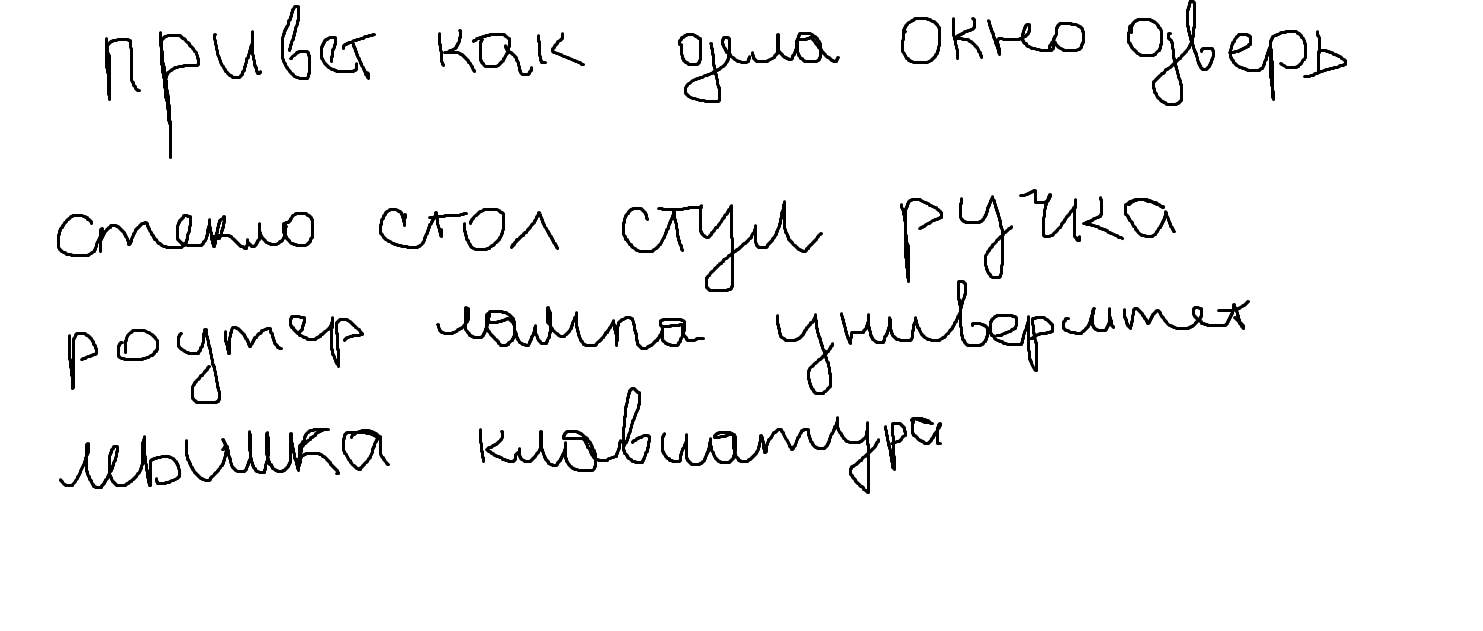 привет как дела окно дверь
стекло стол стул ручка
роутер лампа
мышка клавиатура